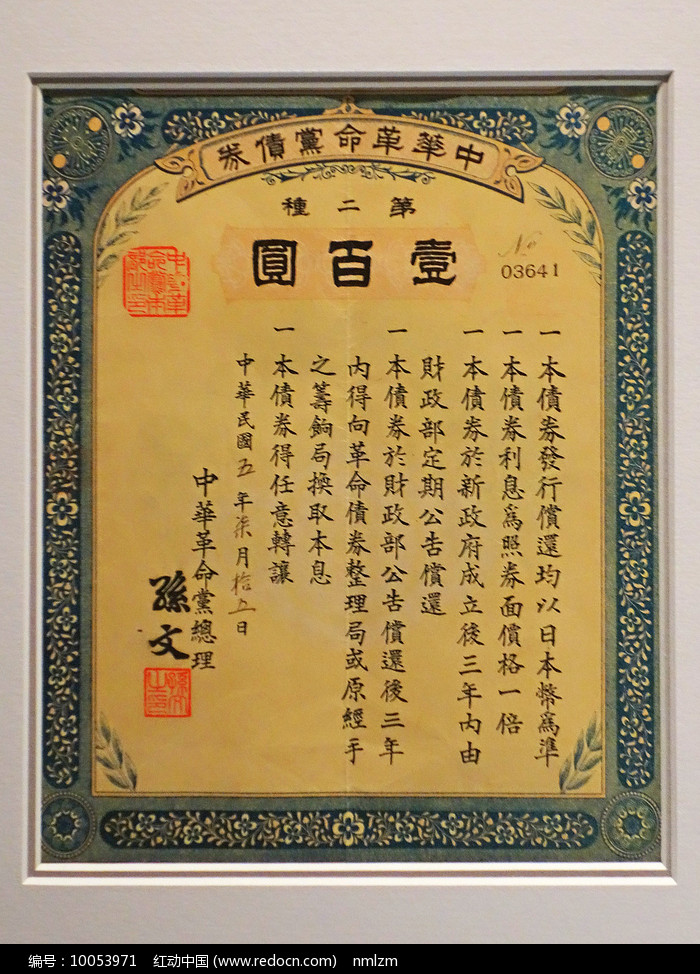 中華革命黨債券
第二種
壹百圓
No
03641
一本債券發行償還均以日本幣爲準
一本債券利息爲照券面價格一倍
一本債券於新政府成立後三年內由
財政部定期公告償還
一本債券於財政部公告償還後三年
內得向革命債券整理局或原經手
之籌餉局換取本息
一本債券得任意轉讓
中華民國五年柒月拾五日
中華革命黨總理
孫文
编号：10053971 红动中国 (www.redocn.com) nmlzm